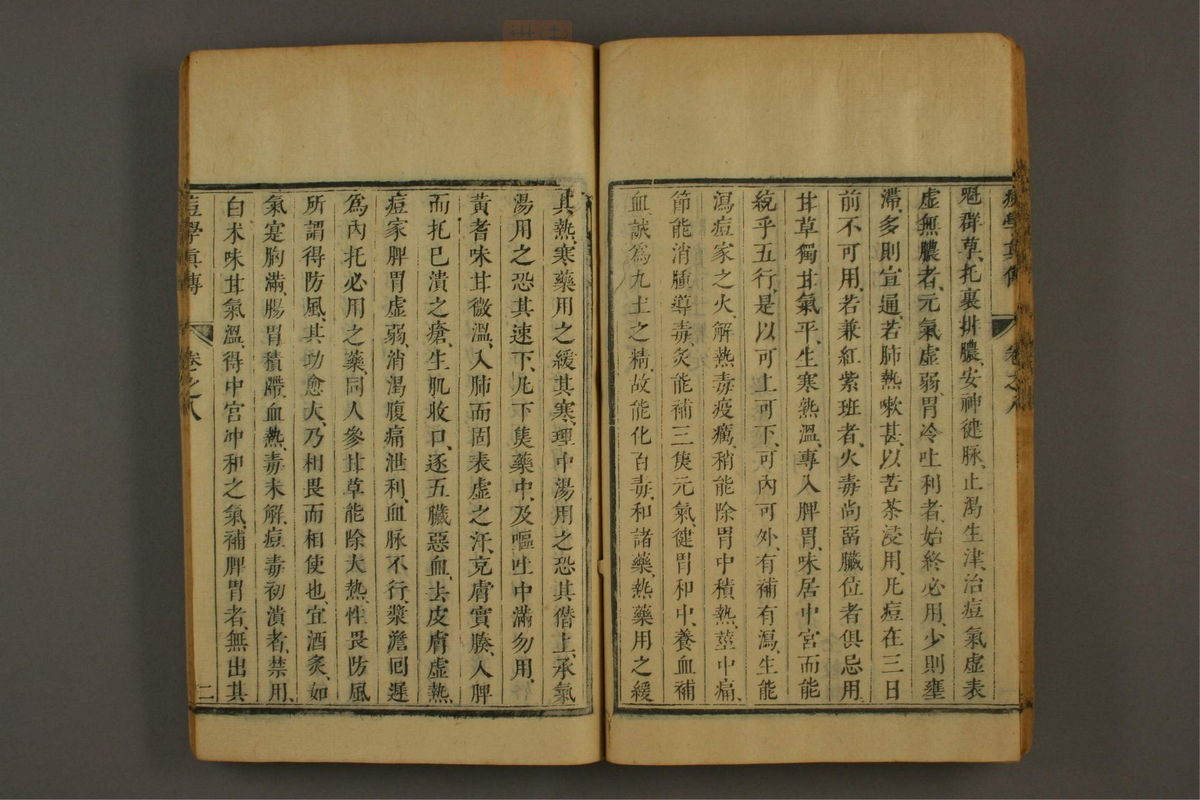 痘學真傳 卷之八
魁群草、托裏排膿、安神健脉、止渴生津、治痘氣虛表
虛無膿者、元氣虛弱、胃冷吐利者、始終必用、少則壅
滯、多則宣通、若肺熱嗽甚、以苦茶浸用、凡痘在三日
前不可用、若兼紅紫班者、火毒尚畱臟位者俱忌用、
甘草獨甘氣平、生寒熱溫、專入脾胃、味居中宮而能
統乎五行、是以可上可下、可內可外、有補有瀉、生能
瀉痘家之火、解熱毒疫癘、稍能除胃中積熱、莖中痛、
節能消腫導毒、炙能補三焦元氣、健胃和中、養血補
血、誠爲九土之精、故能化百毒、和諸藥、熱藥用之緩
其熱、寒藥用之緩其寒、理中湯用之恐其僭上、承氣
湯用之恐其速下、凡下焦藥中、及嘔吐中滿勿用、
黃耆味甘微溫、入肺而固表虛之汗、充膚實腠、入脾
而托已潰之瘡、生肌收口、逐五臟惡血、去皮膚虛熱
痘家脾胃虛弱、消渴腹痛泄利、血脉不行漿澹囘遲
爲內托必用之藥、同人參甘草能除大熱、性畏防風
所謂得防風、其功愈大、乃相畏而相使也、宜酒炙、如
氣寔胸滿、腸胃積滯、血熱、毒未解、痘毒初潰者、禁用、
白术味甘氣溫、得中宮冲和之氣、補脾胃者、無出其
痘學真傳 卷之八 二